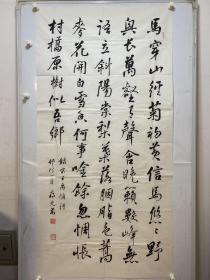 馬穿山徑菊初黃信馬悠悠野
興長萬壑有聲含晚籟數峰無
語立斜陽棠梨葉落胭脂色蕎
麥花開白雪香何事吟餘忽惆悵
村橋原樹似吾鄉